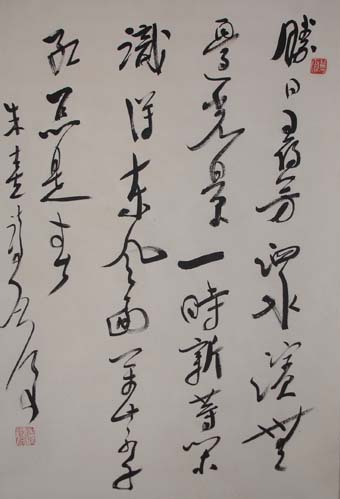 勝日尋芳泗水濱無
邊光景一時新等閒
識得東風面萬紫千
紅總是春
朱熹詩